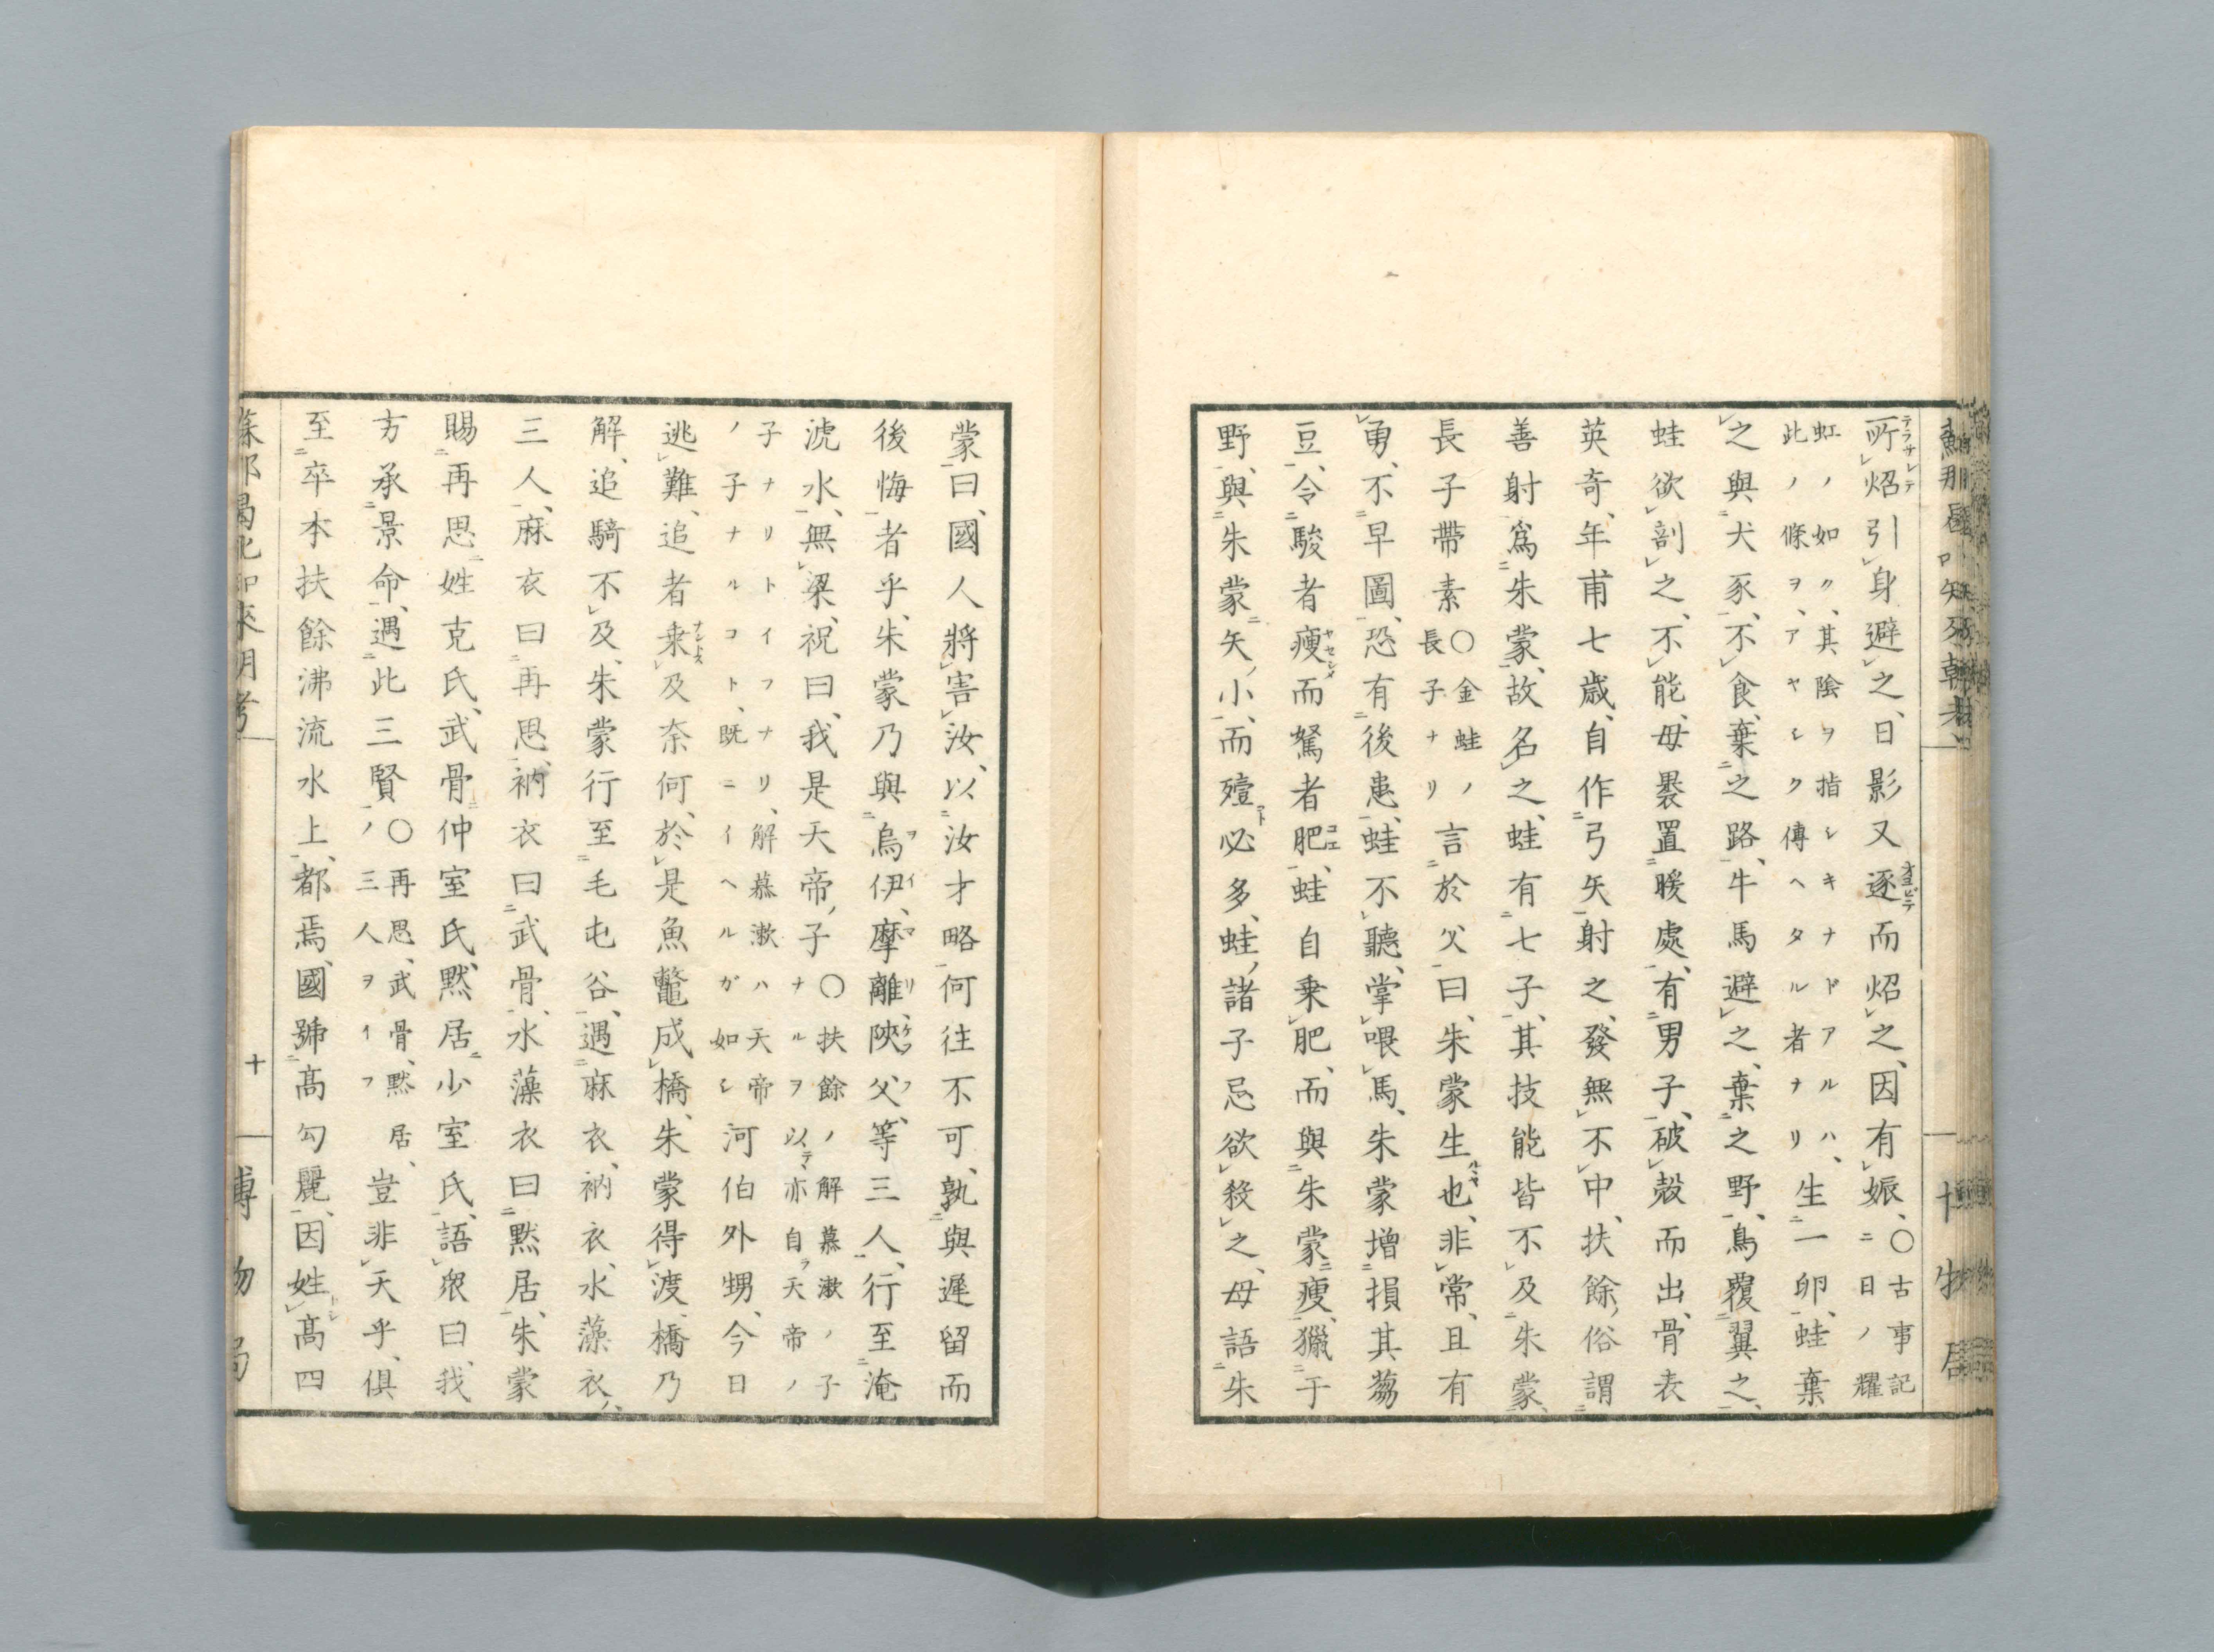 所炤引身避之、日影又逐而炤之、因有娠、〇古事記ニ日ノ耀
虹ノ如ク、其陰ヲ指シキナドアルハ、此ノ條ヲ、アヤシク傳ヘタル者ナリ生一卵、蛙棄
之與犬豕、不食、棄之路、牛馬避之、棄之野、鳥覆翼之、
蛙欲剖之、不能、母褁置暖處、有男子、破殻而出、骨表
英奇、年甫七歳、自作弓矢射之、發無不中、扶餘ノ俗謂
善射爲朱蒙、故名之、蛙有七子、其技能皆不及朱蒙、
長子帶素〇金蛙ノ長子ナリ言於父曰、朱蒙生也、非常、且有
勇、不早圖、恐有後患、蛙不聽、掌喂馬、朱蒙増損其蒭
豆、令駿者瘦而駑者肥、蛙自乗肥、而與朱蒙瘦、獵于
野、與朱蒙矢ノ小、而殪必多、蛙ノ諸子忌欲殺之、母語朱
蒙曰、國人將害汝、以汝才略何往不可、孰與遲留而
後悔者乎、朱蒙乃與烏伊、摩離、陝父、等三人、行至淹
淲水、無梁、祝曰、我是天帝ノ子〇扶餘ノ解慕漱ノ子ナルヲ以テ亦自ラ天帝ノ
子ナリトイフナリ、解慕漱ハ天帝ノ子ナルコト、既ニイヘルガ如シ河伯外甥、今日
逃難、追者乗及奈何、於是魚鼈成橋、朱蒙得渡、橋乃
解、追騎不及、朱蒙行至毛屯谷、遇麻衣、衲衣、水藻衣ノ、
三人、麻衣曰再思、衲衣曰武骨、水藻衣曰黙居、朱蒙
賜再思姓克氏、武骨仲室氏、黙居少室氏、語衆曰、我
方承景命、遇此三賢ノ〇再思、武骨、黙居、ノ三人ヲイフ豈非天乎、俱
至卒本扶餘沸流水上、都焉、國號髙勾麗、因姓髙四
十
博物局